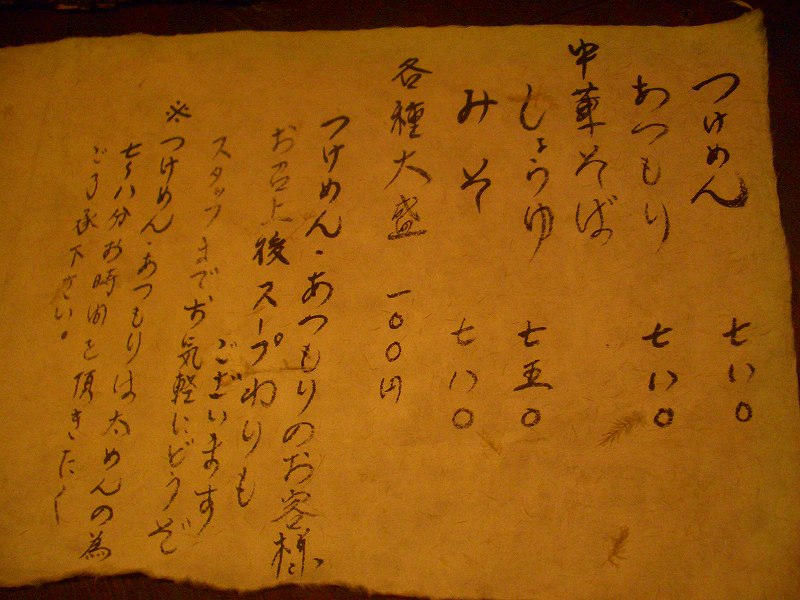 つけめん 七八〇
あつもり 七八〇
中華そば
しょうゆ 七五〇
みそ 七八〇
各種大盛 一〇〇円
つけめん・あつもりのお客様
お召上後スープわりも
ございます
スタッフまでお気軽にどうぞ
※つけめん・あつもりは太めんの為
七〜八分お時間を頂きたく
ご了承下さい。